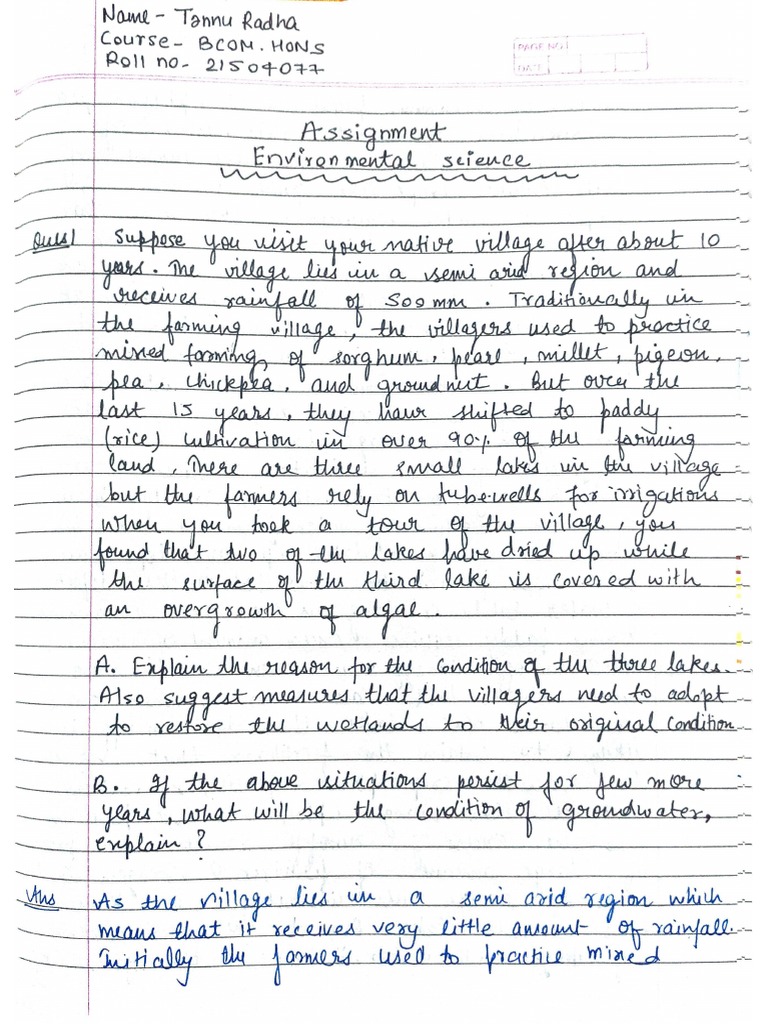 Name - Tannu Radha
Course - BCOM. HONS
Roll no. 21504077
PAGE NO
DATE
Assignment
Environmental science
Ques1 Suppose you visit your native village after about 10
years. The village lies in a semi arid region and
receives rainfall of 500mm. Traditionally in
the farming village, the villagers used to practice
mined farming of sorghum, pearl, millet, pigeon,
pea, chickpea, and groundnut. But over the
last 15 years, they have shifted to paddy
(rice) cultivation in over 90% of the farming
land, There are three small lakes in the village
but the farmers rely on tube-wells for irrigations
When you took a tour of the village, you
found that two of the lakes have dried up while
the surface of the third lake is covered with
an overgrowth of algae.
A. Explain the reason for the condition of the three lakes.
Also suggest measures that the villagers need to adopt
to restore the wetlands to their original condition
B. If the above situations persist for few more
years, what will be the condition of groundwater,
explain?
Ans As the village lies in a semi arid region which
means that it receives very little amount of rainfall.
Initially the farmers used to practice mined